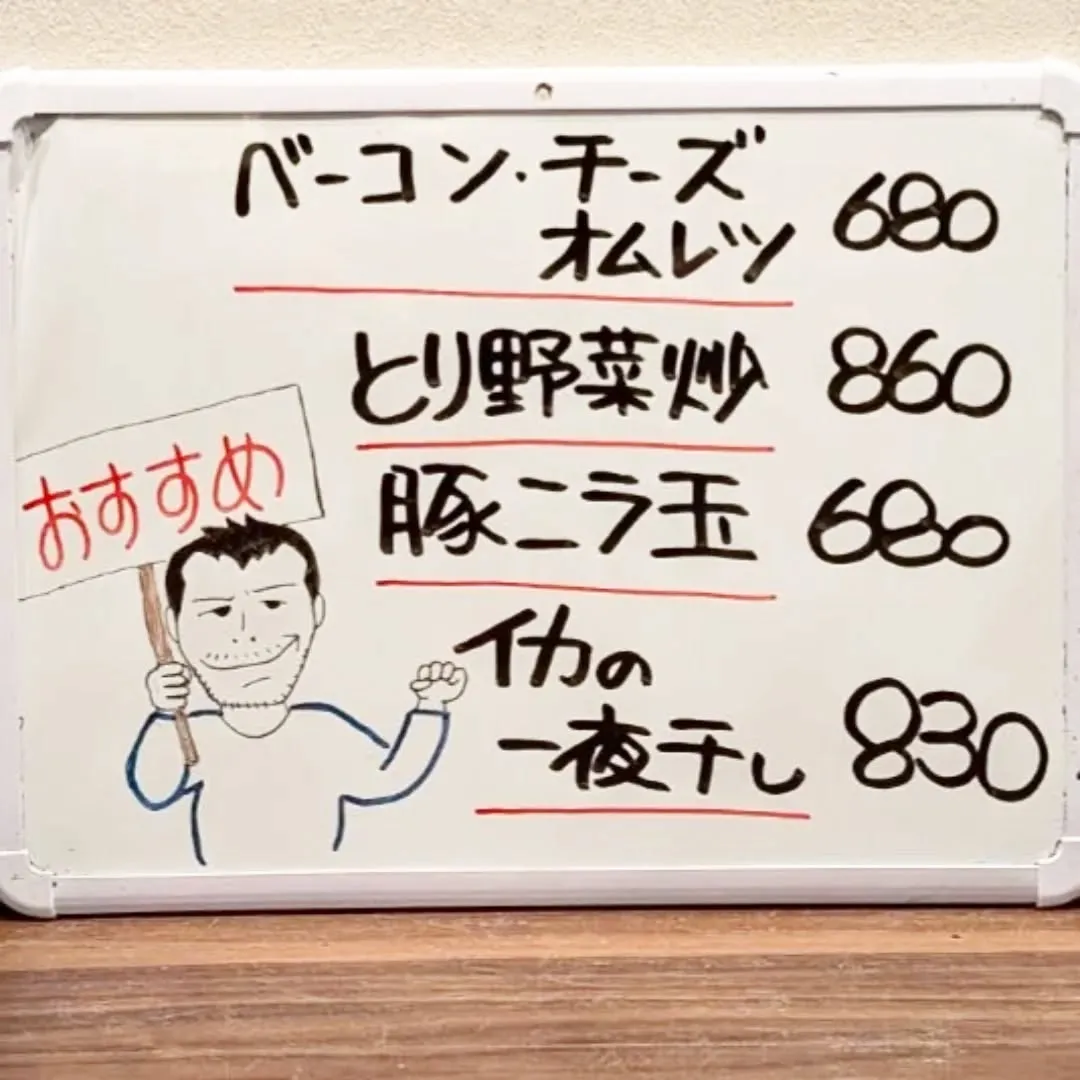 ベーコン・チーズ
オムレツ 680
とり野菜炒 860
豚ニラ玉 680
イカの
一夜干し 830
おすすめ